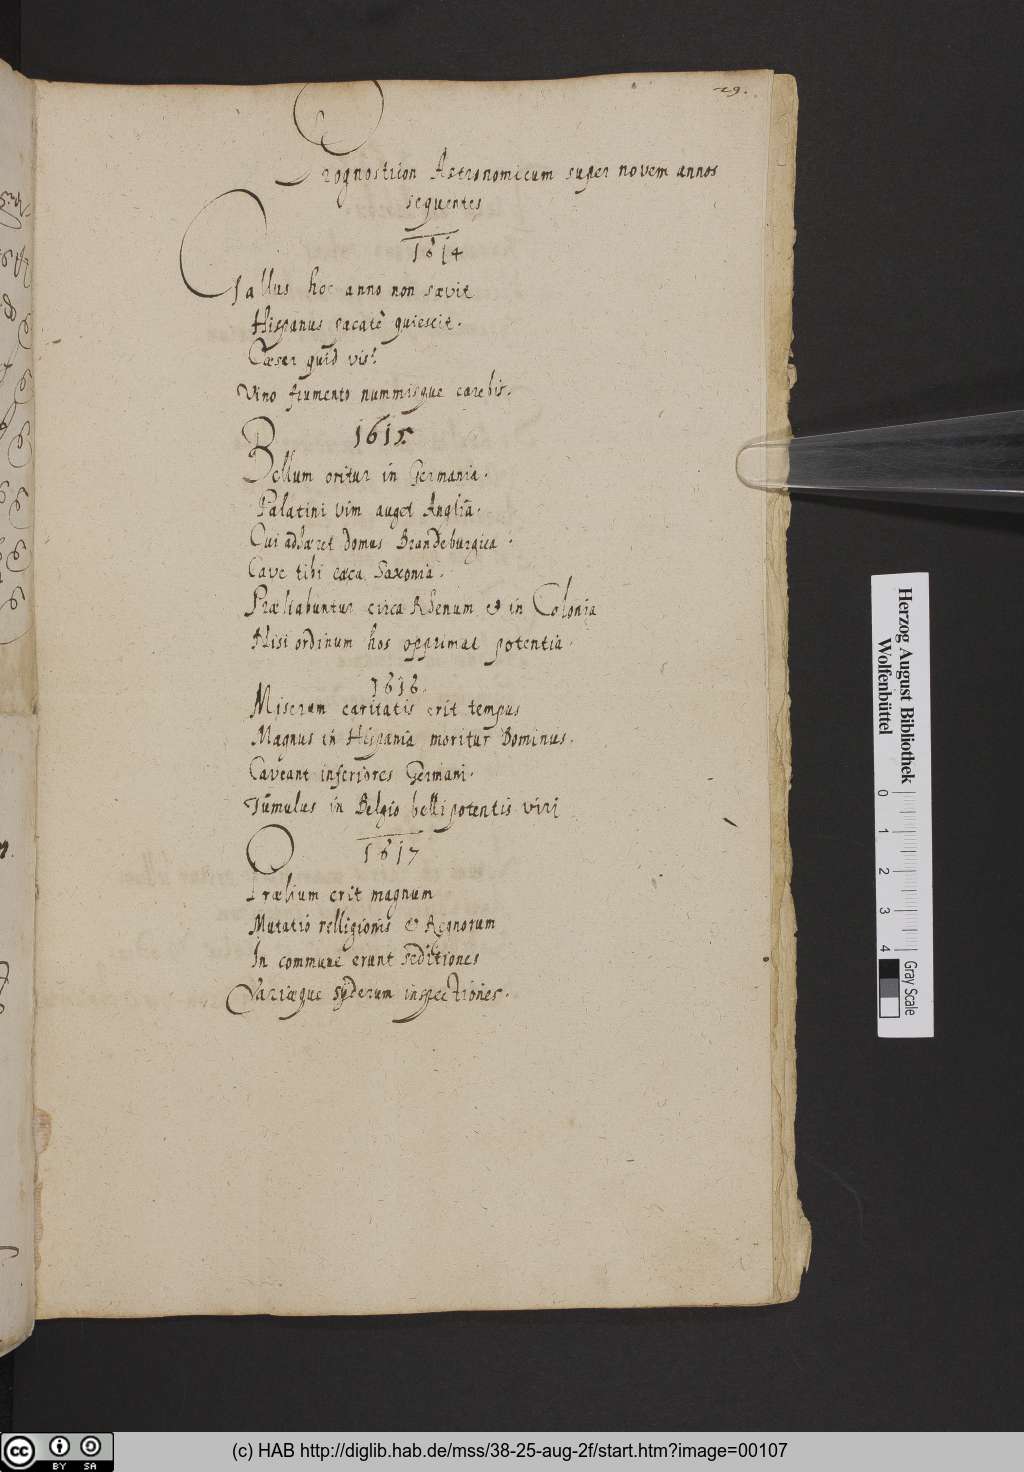 29.
Prognosticon Astronomicum super novem annos
sequentes
1614
Gallus hoc anno non sævit
Hispanus pacatè quiescit.
Cæsar quid vis?
Vino frumento nummisque carebis.
1615
Bellum oritur in Germania.
Palatini vim auget Anglia.
Cui adhæret domus Brandeburgica.
Cave tibi cæca Saxonia.
Præliabuntur circa Rhenum et in Colonia
Nisi ordinum hos opprimat potentia.
1616.
Miserum caritatis erit tempus
Magnus in Hispania moritur Dominus.
Caveant inferiores Germani.
Tumulus in Belgio bellipotentis viri
1617
Prælium erit magnum
Mutatio relligionis et Regnorum
In commune erunt seditiones
Variæque syderum inspectiones.
Herzog August Bibliothek
Wolfenbüttel
0 1 2 3 4
Gray Scale
cc BY SA
(c) HAB http://diglib.hab.de/mss/38-25-aug-2f/start.htm?image=00107